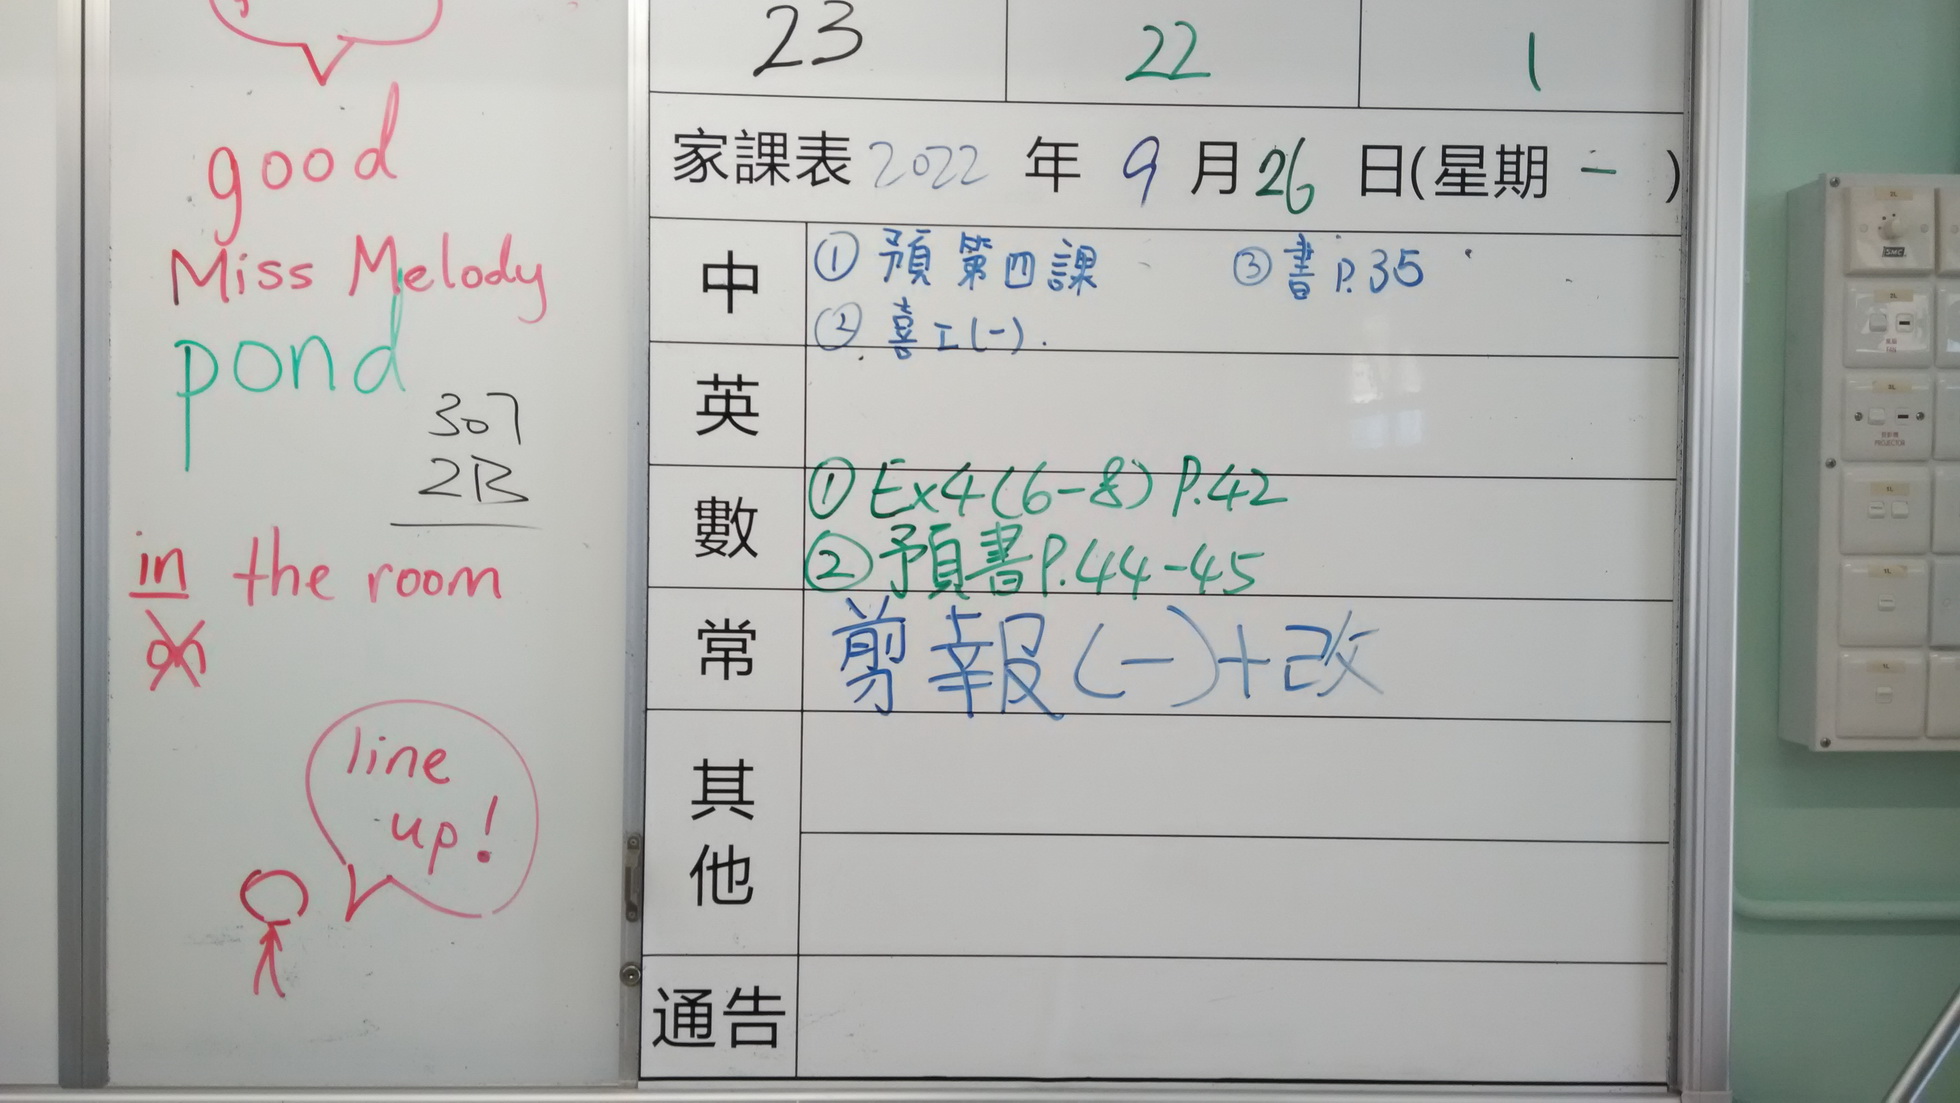 good
Miss Melody
pond
307
2B
in the room
on
line
up!
23 22 1
家課表 2022 年 9 月 26 日(星期 一 )
中 ① 預 第四課 ③ 書 P.35
② 喜工(一).
英
數 ① Ex4(6-8) P.42
② 預書P.44-45
常 剪報(一)+改
其他
通告
PROJECTOR